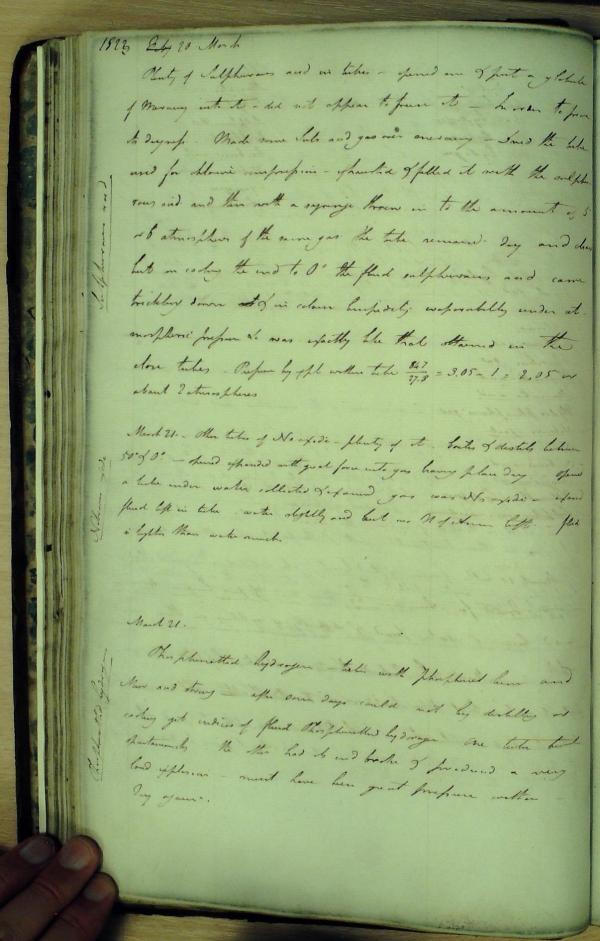 1823 Feby 20 March
Plenty of Sulphurous acid in tubes - opened one & put a globule
of Mercury into it - did not appear to freeze it - In order to prove
its dryness. Made some Sul acid gas over mercury - I used the tube
used for chlorine compression - exhausted & filled it with the sulphu
rous acid and then with a syringe threw in to the amount of 5
or 6 atmospheres of the same gas the tube remained dry and clear
but on cooling the end to 0° the fluid sulphurous acid came
trickling down & in colour limpidity evaporability under at-
mospheric pressure &c was exactly like that obtained in the
close tubes - Pressure by within tube 847/27.8 = 3.05 - 1 = 2.05 or
about 2 atmospheres
Sulphurous acid
March 21 - Other tubes of N oxide - plenty of it - boils & distils between
50° & 0° - opened expanded with great force into gas leaving place dry opened
a tube under water collected & examd gas was Ns oxide -
fluid left in tube water slightly acid but no N of Ammon left fluid
is lighter than water much
Nitrous oxide
March 21.
Phosphuretted hydrogen - tubes with Phosphuret lime and
Mur acid strong - after some days could not by distilling or
cooling get indices of fluid Phosphuretted hydrogen One tube burst
spontaneously the other had its end broke & produced a very
loud explosion - must have been great pressure within -
Try again.
Phosphuretted hydrogen